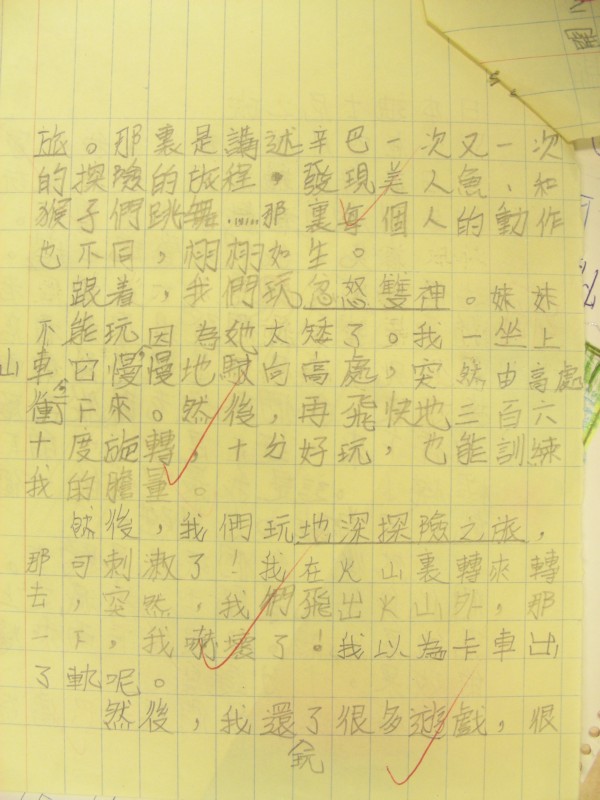 旅。那裏是講述辛巴一次又一次
的探險的旅程。發現美人魚、和
猴子們跳舞……那裏每個人的動作
也不同，栩栩如生。
跟着，我們玩忽怒雙神。妹妹
不能玩因為她太矮了。我一坐上
山車它慢慢地駛向高處，突然由高處
衝下來。然後，再飛快地三百六
十度旋轉，十分好玩，也能訓練
我的膽量。
然後，我們玩地深探險之旅，
那可刺激了！我在火山裏轉來轉
去，突然，我們飛出火山外，那
一下，我嚇壞了！我以為卡車出
了軌呢。
然後，我還玩了很多遊戲，很